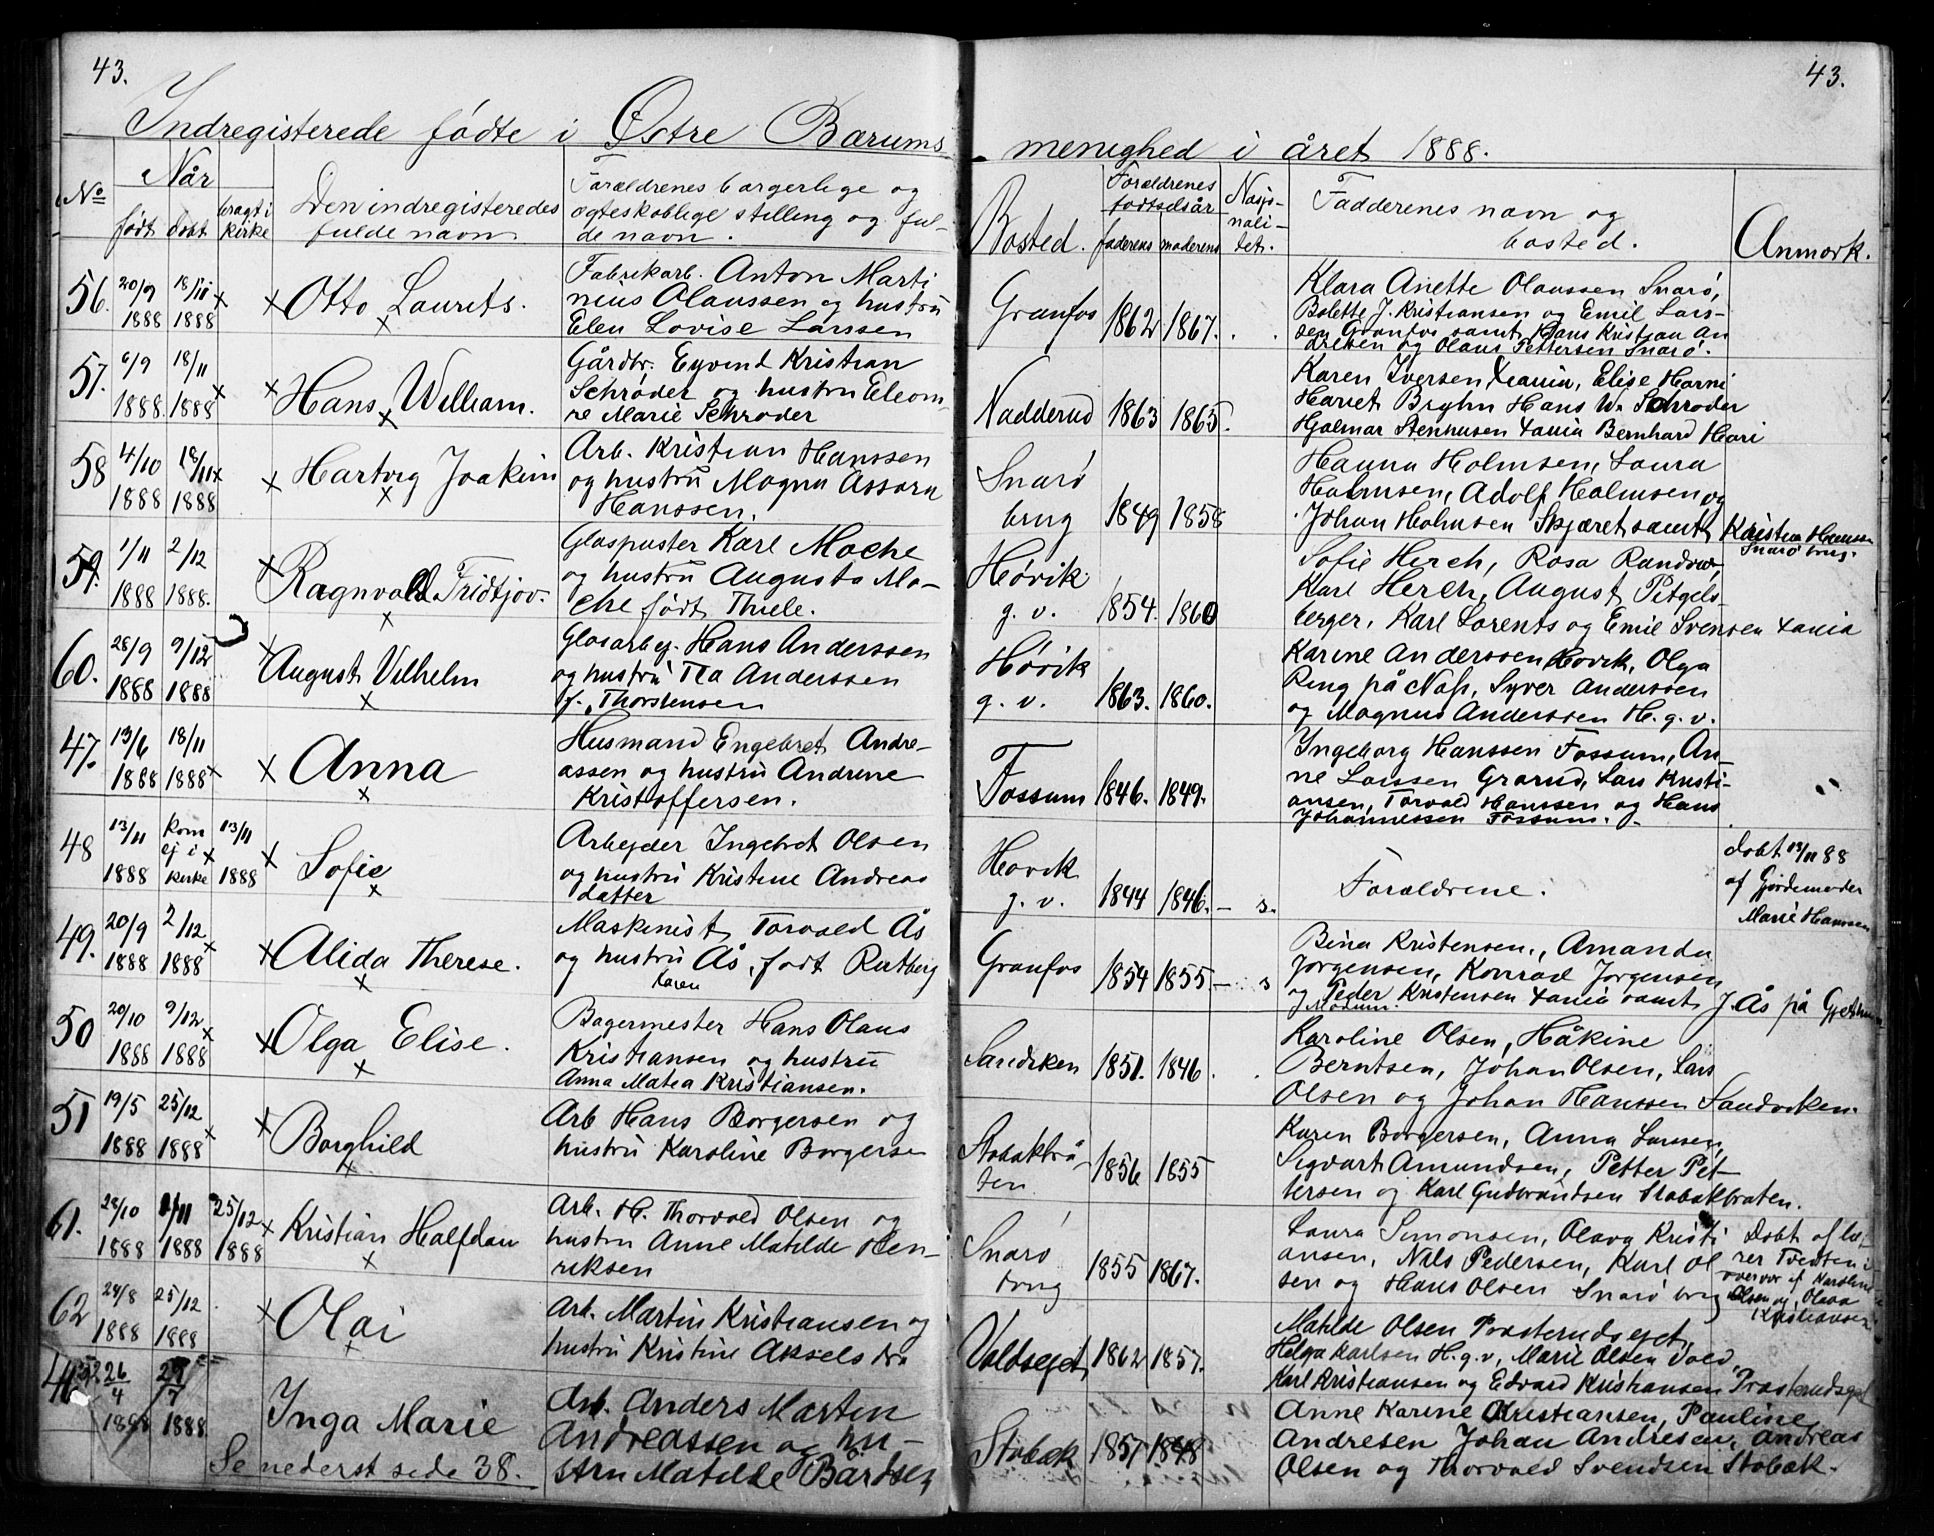 43.
43.
Indregisterede fødte i Østre Bærums
menighed i året 1888.
No
Når
født
døbt
bragt i
kirke
Den indregisteredes
fulde navn
Forældrenes borgerlige og
ægteskablige stilling og ful-
de navn.
Bosted.
Forældrenes
fødselsår
faderens
moderens
Nasjo-
nali-
tet.
Fadderenes navn og
bosted.
Anmærk.
56. 20/9 1888 18/11 1888 Otto Laurits.
Fabrikarb. Anton Marti
nius Olaussen og hustru
Elen Lovise Larssen
Granfos 1862 1867.
Klara Anette Olaussen Snarø,
Bolette J. Kristiansen og Emil Lars-
sen Granfos samt Hans Kristian An
dresen og Olaus Pettersen Snarø.
57. 6/9 1888. 18/11 1888 Hans William.
Gårdbr. Eyvind Kristian
Schrøder og hustru Eleono-
re Marie Schrøder
Nadderud 1863 1865.
Karen Iversen Xania, Elise
Bryhn Hans W. Schrøder
Hjalmar Stenhusen Xania Bernhard
58 4/10 1888 18/11 1888 Hartvig Joakim
Arb. Kristian Hanssen
og hustru Magna
Hanssen.
Snarø
brug 1849 1858
Hanna Holmsen, Laura
Holmsen, Adolf Holmsen og
Johan Holmsen Skjæret samt Kristian Hanssen
Snarø brug.
59. 1/11 1888 2/12 1888. Ragnvald Fridtjov.
Glaspuster Karl Moche
og hustru Augusta Mo-
che født Thiele.
Høvik
g. v. 1854. 1860
Sofie Herch, Rosa
Karl Herch, August
berger, Karl Lorents og Emil Svensen Xania
60. 28/9 1888 9/12 1888 August Vilhelm
Glasarbej. Hans Anderssen
og hustru Anderssen
f. Thorstensen
Høvik
g. v. 1863. 1860.
Karine Anderssen Høvik, Olga
Ring på Næs, Syver Anderssen
og Magnus Anderssen H. g. v.
47. 13/6 1888 18/11 1888 Anna
Husmand Engebret Andre-
assen og hustru Andrine
Kristoffersen.
Fossum 1846. 1849.
Ingeborg Hanssen Fossum, An-
ne Larssen Grorud, Lars Kristi-
ansen, Torvald Hanssen og Hans
Johannessen Fossum.
48 13/11 1888 kom
ej i
kirke 13/11 1888 Sofie
Arbejder Ingebret Olsen
og hustru Kristine Andreas
datter
Høvik
g. v. 1844 1846. – s.
Forældrene.
døbt 13/11 88
af Gjordemoder
Marie Hanssen
49. 20/9 1888 2/12 1888 Alida Therese.
Maskinist Torvald Ås
og hustru Ås, født Rutberg
Karen
Granfos 1854 1855. – s
Bina Kristensen., Amanda
Jørgensen, Konrad Jørgensen
og Peder Kristensen Xania samt J. Ås på
Modum.
50 20/10 1888 9/12 1888 Olga Elise.
Bagermester Hans Olaus
Kristiansen og hustru
Anna Matea Kristiansen.
Sandviken 1851. 1846.
Karoline Olsen, Håkine
Berntsen, Johan Olsen, Lars
Olsen og Johan Hanssen Sandviken.
51 19/5 1888 25/12 1888 Borghild
Arb Hans Borgersen og
hustru Karoline Borgersen
Stabækbrå-
ten 1856 1855
Karen Borgersen, Anna Larssen,
Sigvart Amundsen, Petter Pet-
tersen og Karl Gudbrandsen Stabækbråten.
61. 28/10 1888 1/11 1888 25/12 1888 Kristian Halfdan
Arb. H. Thorvald Olsen og
hustru Anne Matilde Hen-
riksen
Snarø
brug 1855 1867.
Laura Simonsen, Olava Kristi
ansen, Nils Pedersen, Karl Ol
sen og Hans Olsen Snarø brug
Døbt af læ-
rer
overvær af Karoline
Olsen og Olava
Kristiansen
62 24/8 1888 25/12 1888 Olai
Arb. Martin Kristiansen og
hustru Kristine Akselsdtr
Voldsejet 1862 1857.
Matilde Olsen Præsterudsejet,
Helga Karlsen H. g. v, Marie Olsen Vold,
Karl Kristiansen og Edvard Kristiansen Præsterudsejet
26/4 1888 29/7 1888 Inga Marie
Se nederst side 38.
Arb. Anders Marten
Andreassen og hu-
stru Matilde Bårdsen
Stabæk 1857 1848
Anne Karine Kristiansen, Pauline
Andresen Johan Andresen, Andreas
Olsen og Thorvald Svendsen Stabæk.